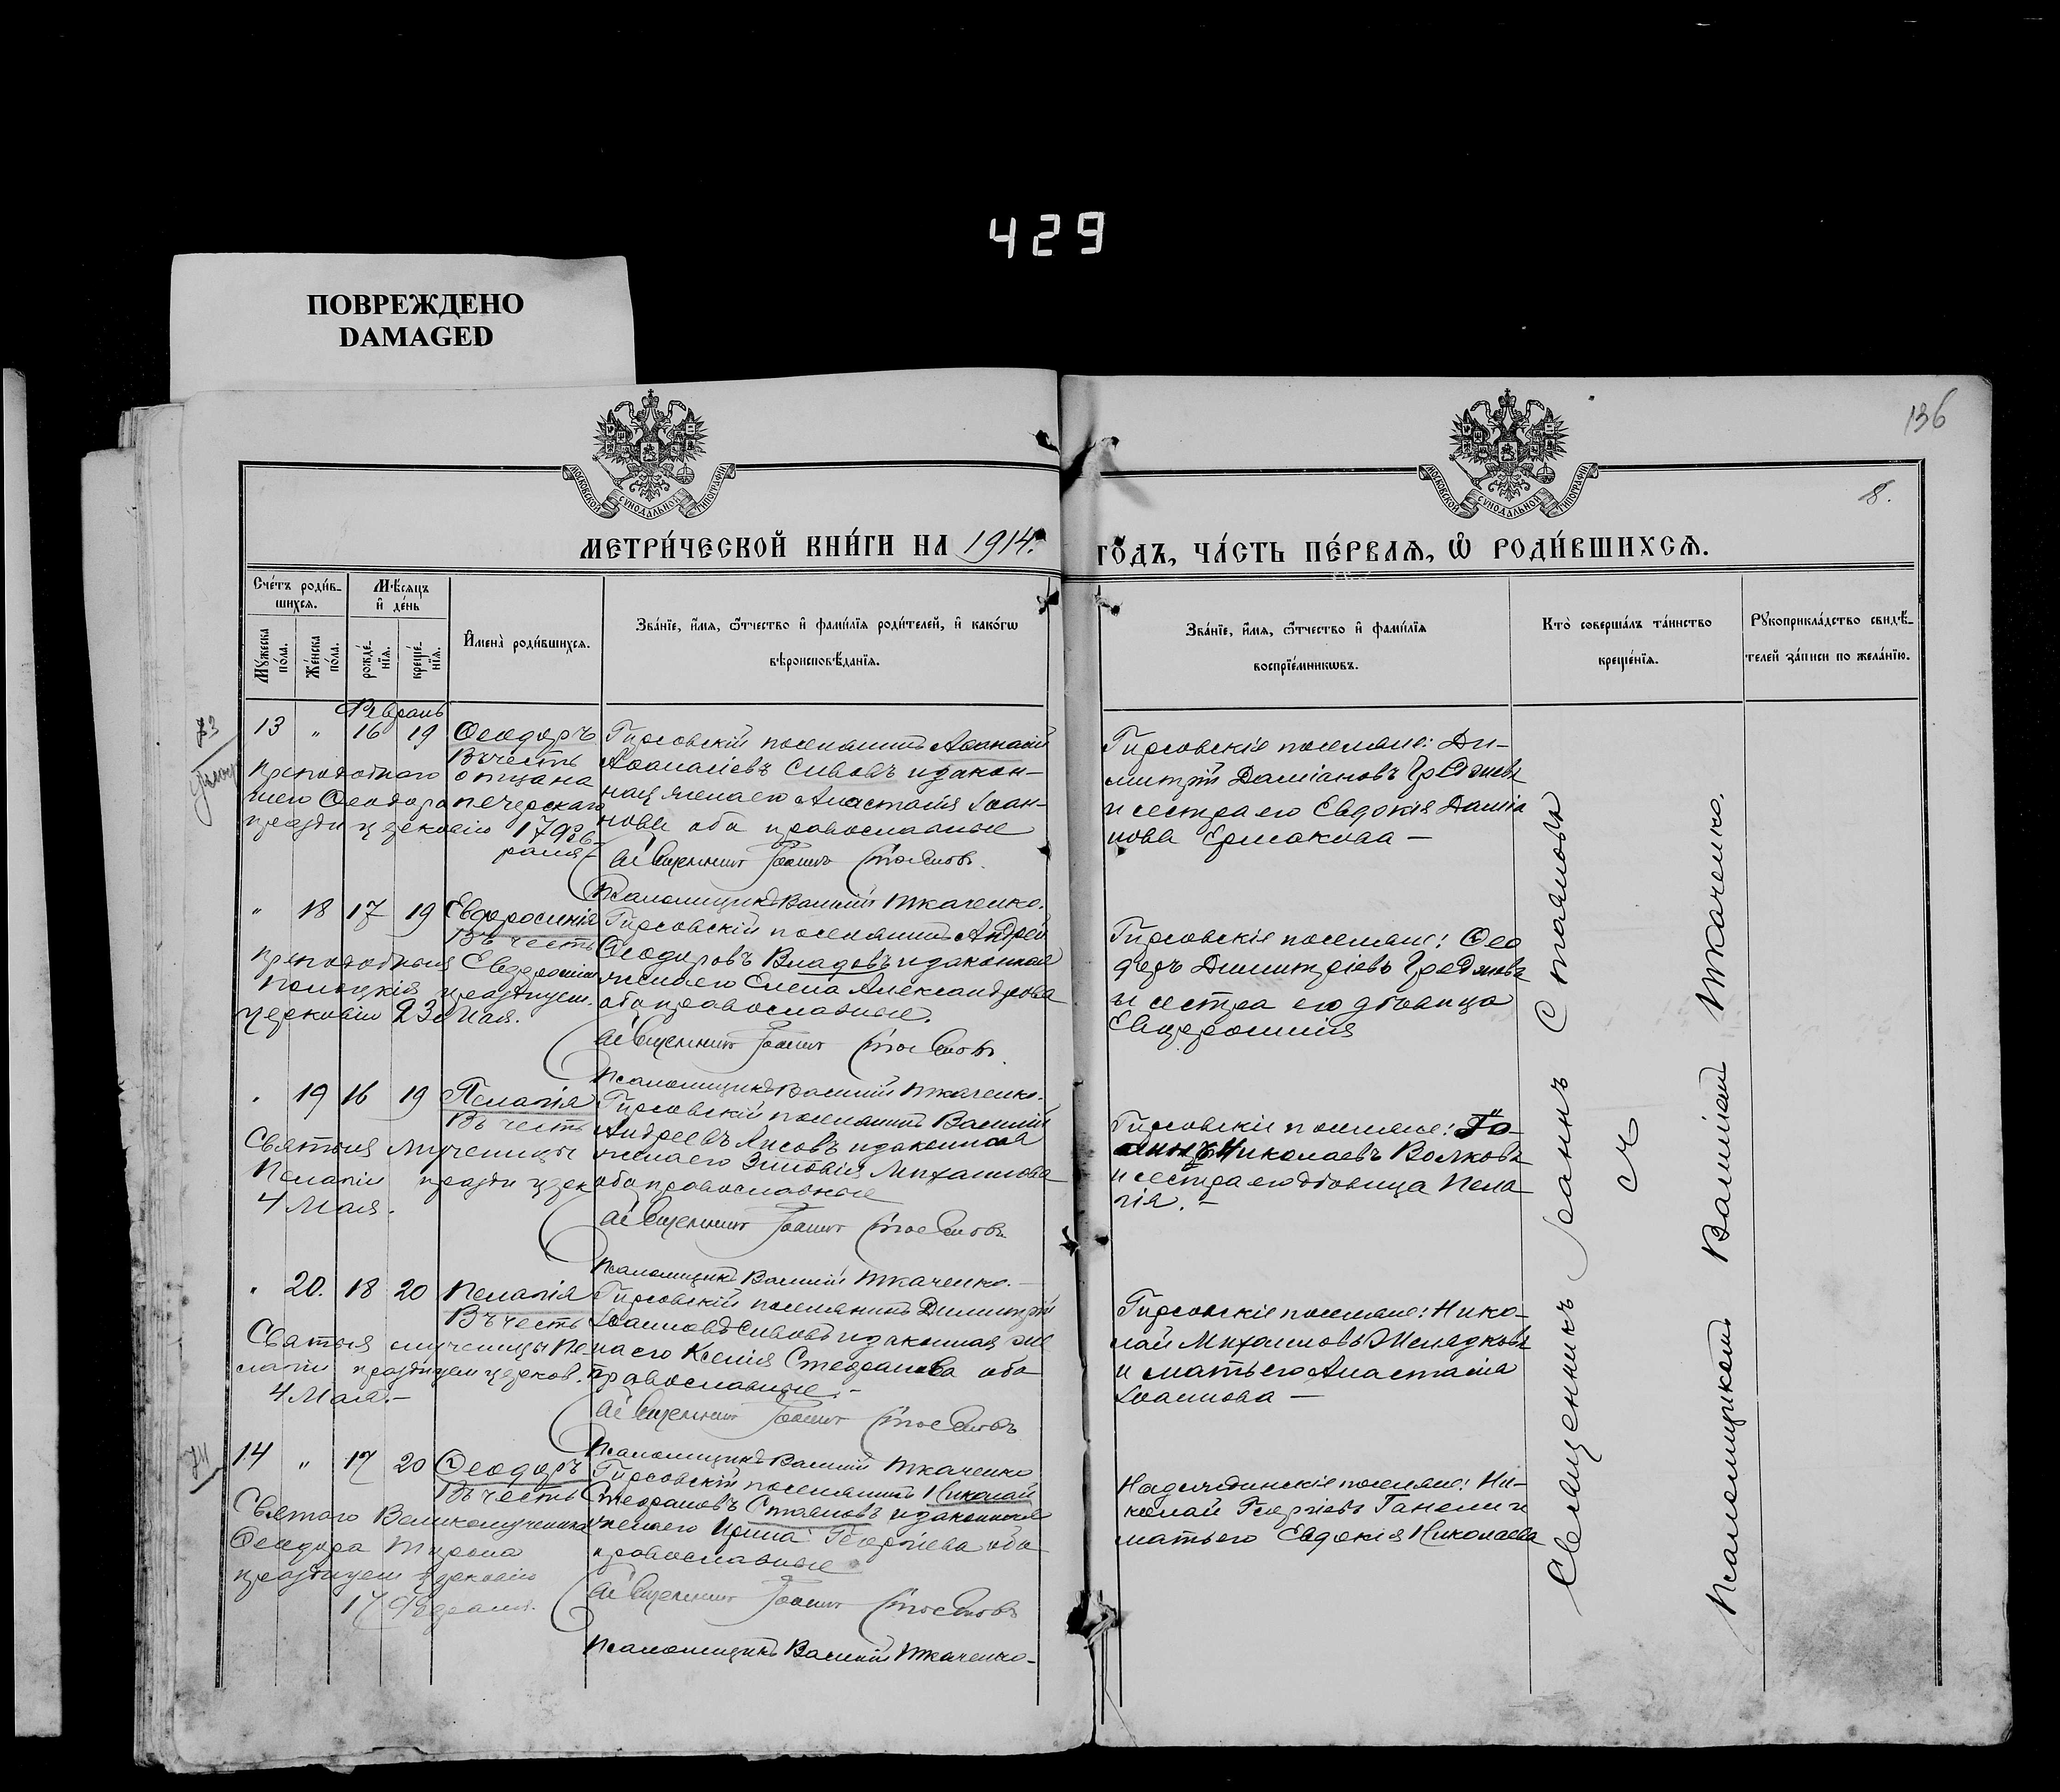 429
ПОВРЕЖДЕНО
DAMAGED
136
8.
МОСКОВСКОЙ СѴНОДАЛЬНОЙ ТИПОГРАФІИ
МОСКОВСКОЙ СѴНОДАЛЬНОЙ ТИПОГРАФІИ
МЕТРИ́ЧЕСКОЙ КНИ́ГИ НА 1914.
ГО́ДЪ, ЧА́СТЬ ПЕ́РВАЯ, Ѽ РОДИ́ВШИХСЯ.
Сче́тъ роди́в-
шихся.
Мꙋ́жеска по́ла.
Же́нска по́ла.
М́ѣсяцъ и҆ де́нь
рожде́-нїя.
креще́-нїя.
И҆мена̀ роди́вшихся.
Зва́нїе, и҆́мя, ѻ҆́тчество и҆ фами́лїя роди́телей, и҆ како́гѡ
вѣроисповѣ́данїя.
Зва́нїе, и҆́мя, ѻ҆́тчество и҆ фами́лїя
воспрїе́мникѡвъ.
Кто̀ соверша́лъ та́инство
креще́нїя.
Рꙋкоприкла́дство свидѣ́-
телей за́писи по жела́нїю.
Февраль
73
13 " 16 19 Ѳеодоръ
Въ честь
преподобнаго отца на
шего Ѳеодора печерскаго
праздн церковію 17 Фев-
раля
Гирсовскій поселянинъ Аѳанасій
Аѳанасіевъ Сивовъ и закон-
ная жена его Анастасія Іоан-
нова оба православные
Священникъ Іоаннъ Стояновъ.
Псаломщикъ Василій Ткаченко.
Гирсовскіе поселяне: Ди-
митрій Даміановъ Градиновъ
и сестра его Евдокія Даміа
нова Ермакова —
" 18 17 19 Евфросинія
Въ честь
преподобныя Евфросиніи
Полоцкія празднуем.
церковію 23 Мая.
Гирсовскій поселянинъ Андрей
Ѳеодоровъ Владовъ и законная
жена его Елена Александрова
оба православные.
Священникъ Іоаннъ Стояновъ.
Псаломщикъ Василій Ткаченко.
Гирсовскіе поселяне: Ѳео
доръ Димитріевъ Градиновъ
и сестра его дѣвица
Евфросинія
" 19 16 19 Пелагія
Въ честь
Святыя мученицы
Пелагіи праздн церк
4 Мая.
Гирсовскій поселянинъ Василій
Андреевъ Лисовъ и законная
жена его Зиновія Михаилова
оба православные
Священникъ Іоаннъ Стояновъ.
Псаломщикъ Василій Ткаченко.
Гирсовскіе поселяне: Іо-
аннъ Николаевъ Волковъ
и сестра его дѣвица Пела
гія. —
" 20. 18 20 Пелагія
Въ честь
Святыя мученицы Пе
лагіи празднуем церков.
4 Мая. —
Гирсовскій поселянинъ Димитрій
Іоанновъ Сивовъ и законная же
на его Ксенія Стефанова оба
православные. —
Священникъ Іоаннъ Стояновъ
Псаломщикъ Василій Ткаченко
Гирсовскіе поселяне: Нико-
лай Михаиловъ Желядковъ
и мать его Анастасія
Іоаннова —
74
14 " 17 20 Ѳеодоръ
Въ честь
Святого Великомученика
Ѳеодора Тирона
празднуем церковію
17 Февраля.
Гирсовскій поселянинъ Николай
Стефановъ Стояновъ и законная
жена его Ирина Георгіева оба
православные
Священникъ Іоаннъ Стояновъ
Псаломщикъ Василій Ткаченко.
Надеждинскіе поселяне: Ни-
колай Георгіевъ Ганевъ и
мать его Евдокія Николаева
Священникъ Іоаннъ Стояновъ
съ
Псаломщикомъ Василіемъ Ткаченко.